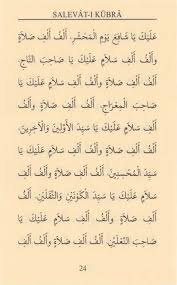 SALEVÂT-I KÜBRÂ
عَلَيْكَ يَا شَافِعَ يَوْمِ الْمَحْشَرِ، أَلْفُ أَلْفِ صَلَاةٍ
وَأَلْفُ أَلْفِ سَلَامٍ عَلَيْكَ يَا صَاحِبَ التَّاجِ،
أَلْفُ أَلْفِ صَلَاةٍ وَأَلْفُ أَلْفِ سَلَامٍ عَلَيْكَ يَا
صَاحِبَ الْمِعْرَاجِ، أَلْفُ أَلْفِ صَلَاةٍ وَأَلْفُ أَلْفِ
سَلَامٍ عَلَيْكَ يَا سَيِّدَ الْأَوَّلِينَ وَالْآخِرِينَ،
أَلْفُ أَلْفِ صَلَاةٍ وَأَلْفُ أَلْفِ سَلَامٍ عَلَيْكَ يَا
سَيِّدَ الْمُحْسِنِينَ، أَلْفُ أَلْفِ صَلَاةٍ وَأَلْفُ أَلْفِ
سَلَامٍ عَلَيْكَ يَا سَيِّدَ الْكَوْنَيْنِ وَالثَّقَلَيْنِ،
أَلْفُ أَلْفِ صَلَاةٍ وَأَلْفُ أَلْفِ سَلَامٍ عَلَيْكَ يَا
صَاحِبَ النَّعْلَيْنِ، أَلْفُ أَلْفِ صَلَاةٍ وَأَلْفُ أَلْفِ
24